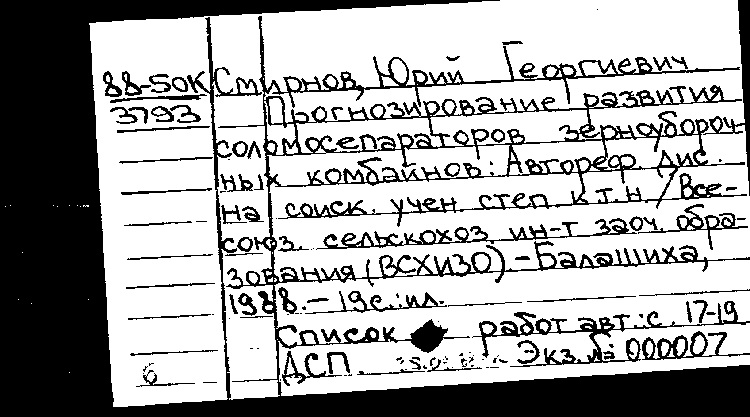 88-50К Смирнов, Юрий Георгиевич
3793 Прогнозирование развития
соломосепараторов зерноубороч-
ных комбайнов: Автореф. дис.
на соиск. учен. степ. к.т.н. / Все-
союз. сельскохоз. ин-т заоч. обра-
зования (ВСХИЗО). - Балашиха,
1988. - 19с.: ил.
Список работ авт.: с. 17-19
ДСП. Экз. № 000007
6